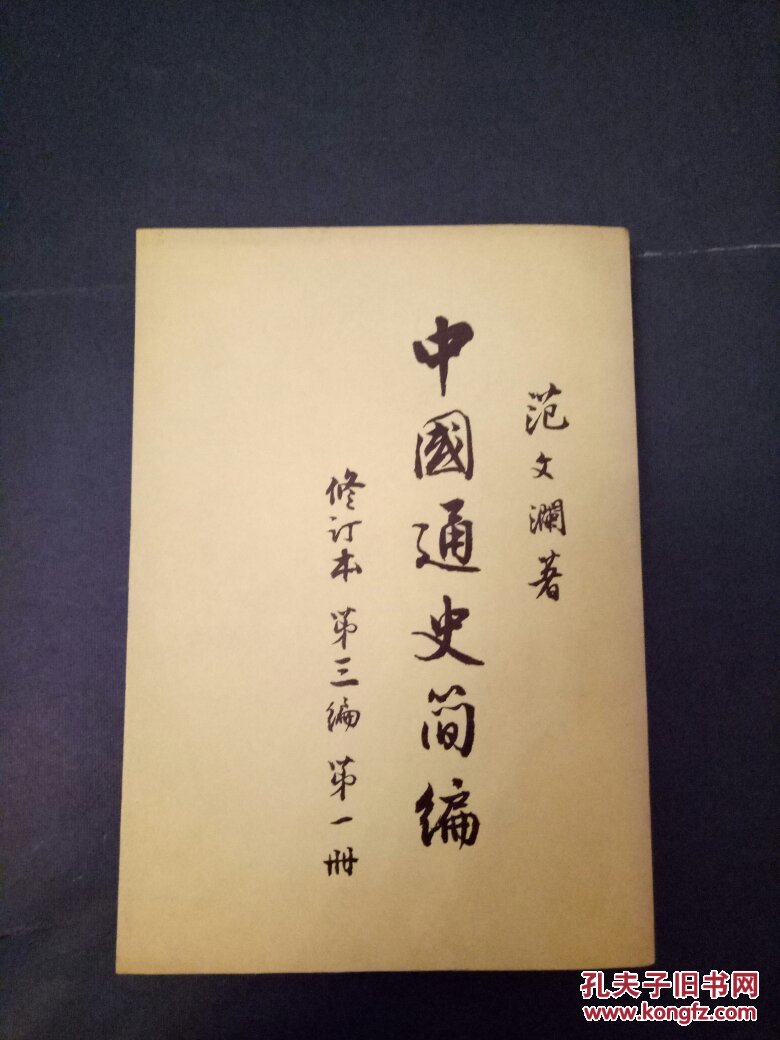 范文瀾著
中國通史简编
修订本 第三编 第一册
孔夫子旧书网
www.kongfz.com